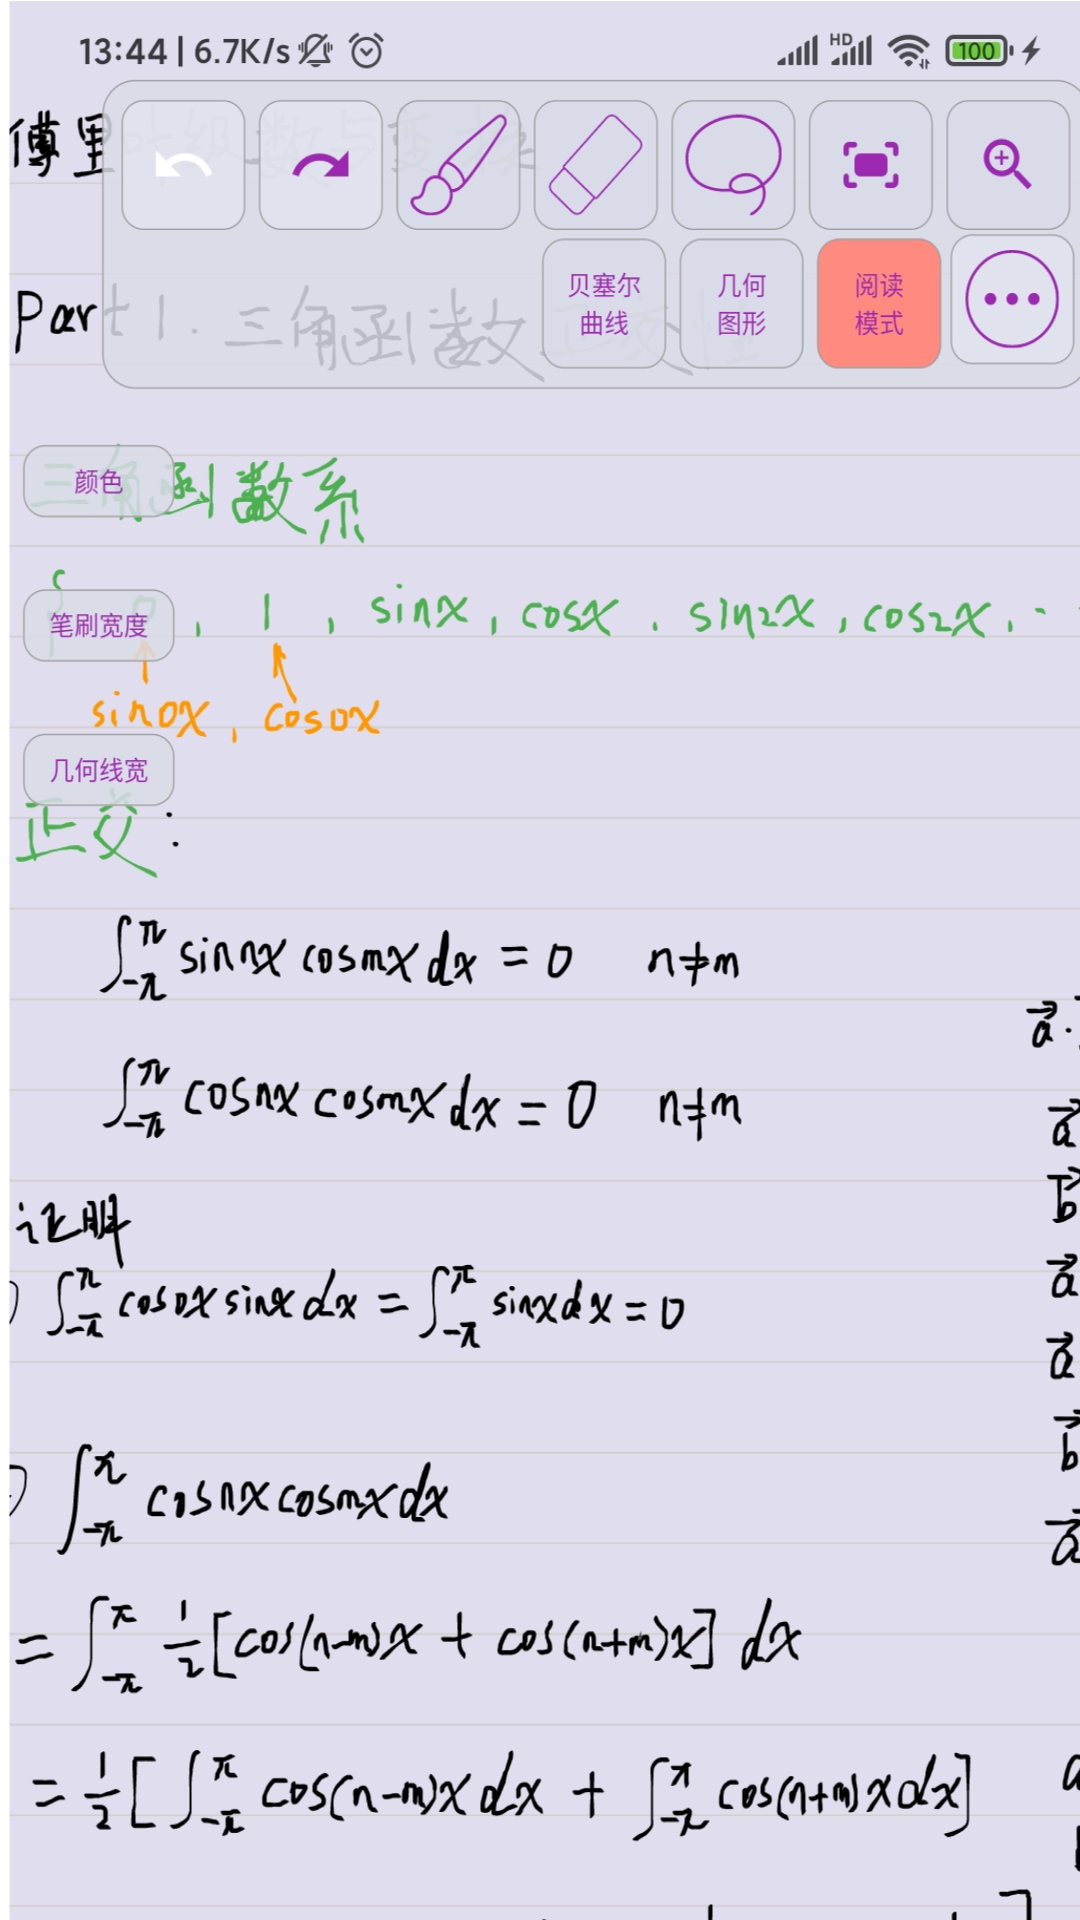 13:44 | 6.7K/s HD 100
傅里叶级数与变换
Part 1. 三角函数正交性
贝塞尔曲线
几何图形
阅读模式
颜色
三角函数系
笔刷宽度
0, 1, sinx, cosx, sin2x, cos2x, ··
sin0x, cos0x
几何线宽
正交:
∫_{-π}^{π} sin nx cos mx dx = 0 n≠m
a⃗·
∫_{-π}^{π} cos nx cos mx dx = 0 n≠m
a⃗
b⃗
证明
a⃗
∫_{-π}^{π} cos0x sinx dx = ∫_{-π}^{π} sinx dx = 0
a⃗
b⃗
∫_{-π}^{π} cos nx cos mx dx
a⃗
= ∫_{-π}^{π} 1/2 [cos(n-m)x + cos(n+m)x] dx
= 1/2 [∫_{-π}^{π} cos(n-m)x dx + ∫_{-π}^{π} cos(n+m)x dx]